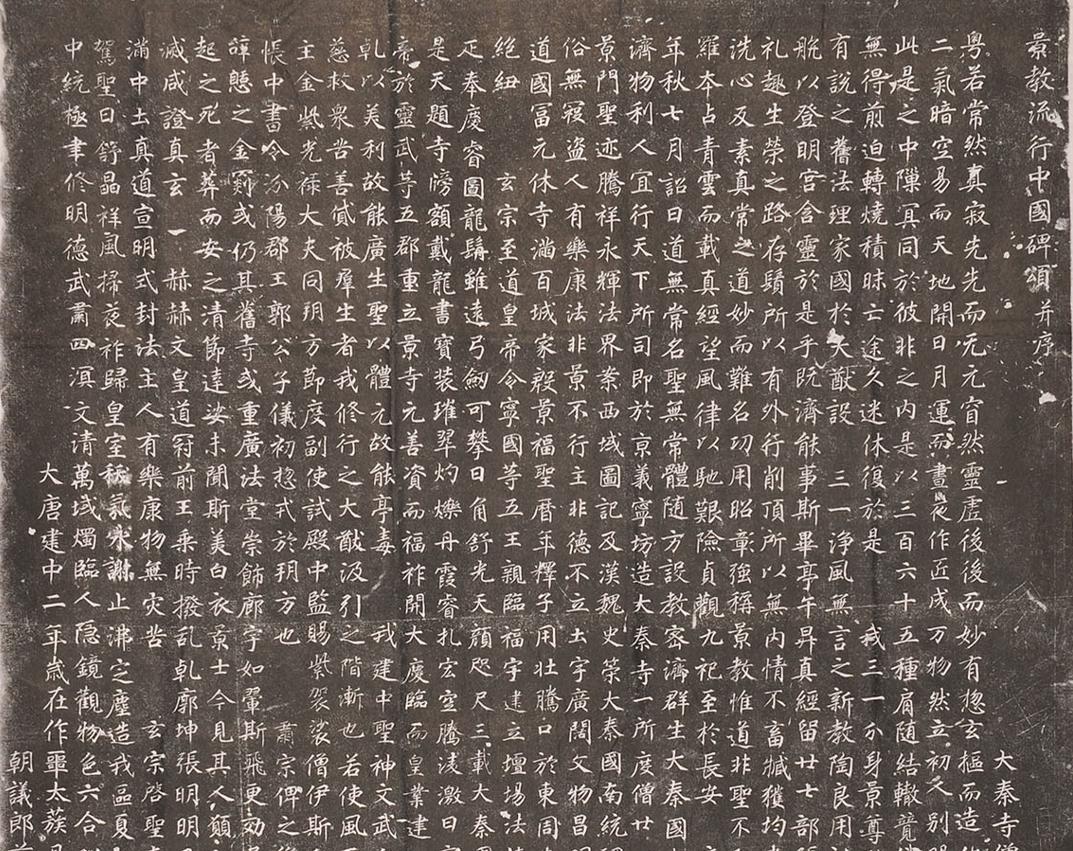 景教流行中國碑頌并序
大秦寺僧
粤若常然真寂先先而无元窅然靈虛後後而妙有惣玄樞而造
二氣暗空易而天地開日月運而晝夜作匠成万物然立初人別賜
此是之中隟冥同於彼非之内是以三百六十五種肩随結轍競
無得煎迫轉燒積昧亡途久迷休復於是 我三一分身景尊
有說之舊法理家國於大猷設 三一浄風無言之新教陶良用於
航以登明宮含靈於是乎既濟能事斯畢亭午昇真經留廿七部張
礼趣生榮之路存鬚所以有外行削頂所以無内情不畜臧獲均
洗心反素真常之道妙而難名功用昭彰強稱景教惟道非聖不
羅本占青雲而載真經望風律以馳艱險貞觀九祀至於長安
年秋七月詔曰道無常名聖無常體随方設教密濟群生大秦國
濟物利人宜行天下所司即於京義寧坊造大秦寺一所度僧廿
景門聖迹騰祥永輝法界案西域圖記及漢魏史策大秦國南統
俗無寇盗人有樂康法非景不行主非德不立土宇廣闊文物昌
道國冨元休寺滿百城家殷景福聖曆年釋子用壯騰口於東周
絶紐 玄宗至道皇帝令寧國等五王親臨福宇建立壇場法
疋奉慶睿圖龍髯雖遠弓劔可攀日角舒光天顔咫尺三載大秦
是天題寺牓額戴龍書寶裝璀翠灼爍丹霞睿扎宏空騰淩激日
帝於靈武等五郡重立景寺元善資而福祚開大慶臨而皇業建
乹以美利故能廣生聖以體元故能亭毒 我建中聖神文武
慈救衆苦善貸被羣生者我修行之大猷汲引之階漸也若使風
主金紫光禄大夫同朔方節度副使試殿中監賜紫袈裟僧伊斯
帳中書令汾陽郡王郭公子儀初惣戎於朔方也 肅宗俾之
辝憩之金罽或仍其舊寺或重廣法堂崇飾廊宇如翬斯飛更効
起之死者葬而安之清節達娑未聞斯美白衣景士今見其人願
減咸證真玄 一 赫赫文皇道冠前王乘時撥乱乹廓坤張明明
滿中土真道宣明式封法主人有樂康物無灾苦 玄宗啓聖
駕聖日舒晶祥風掃夜祚歸皇室祅氛永謝止沸定塵造我區夏
中統極聿修明德武肅四溟文清萬域燭臨人隠鏡觀物色六合
大唐建中二年歲在作噩太蔟
朝議郎前